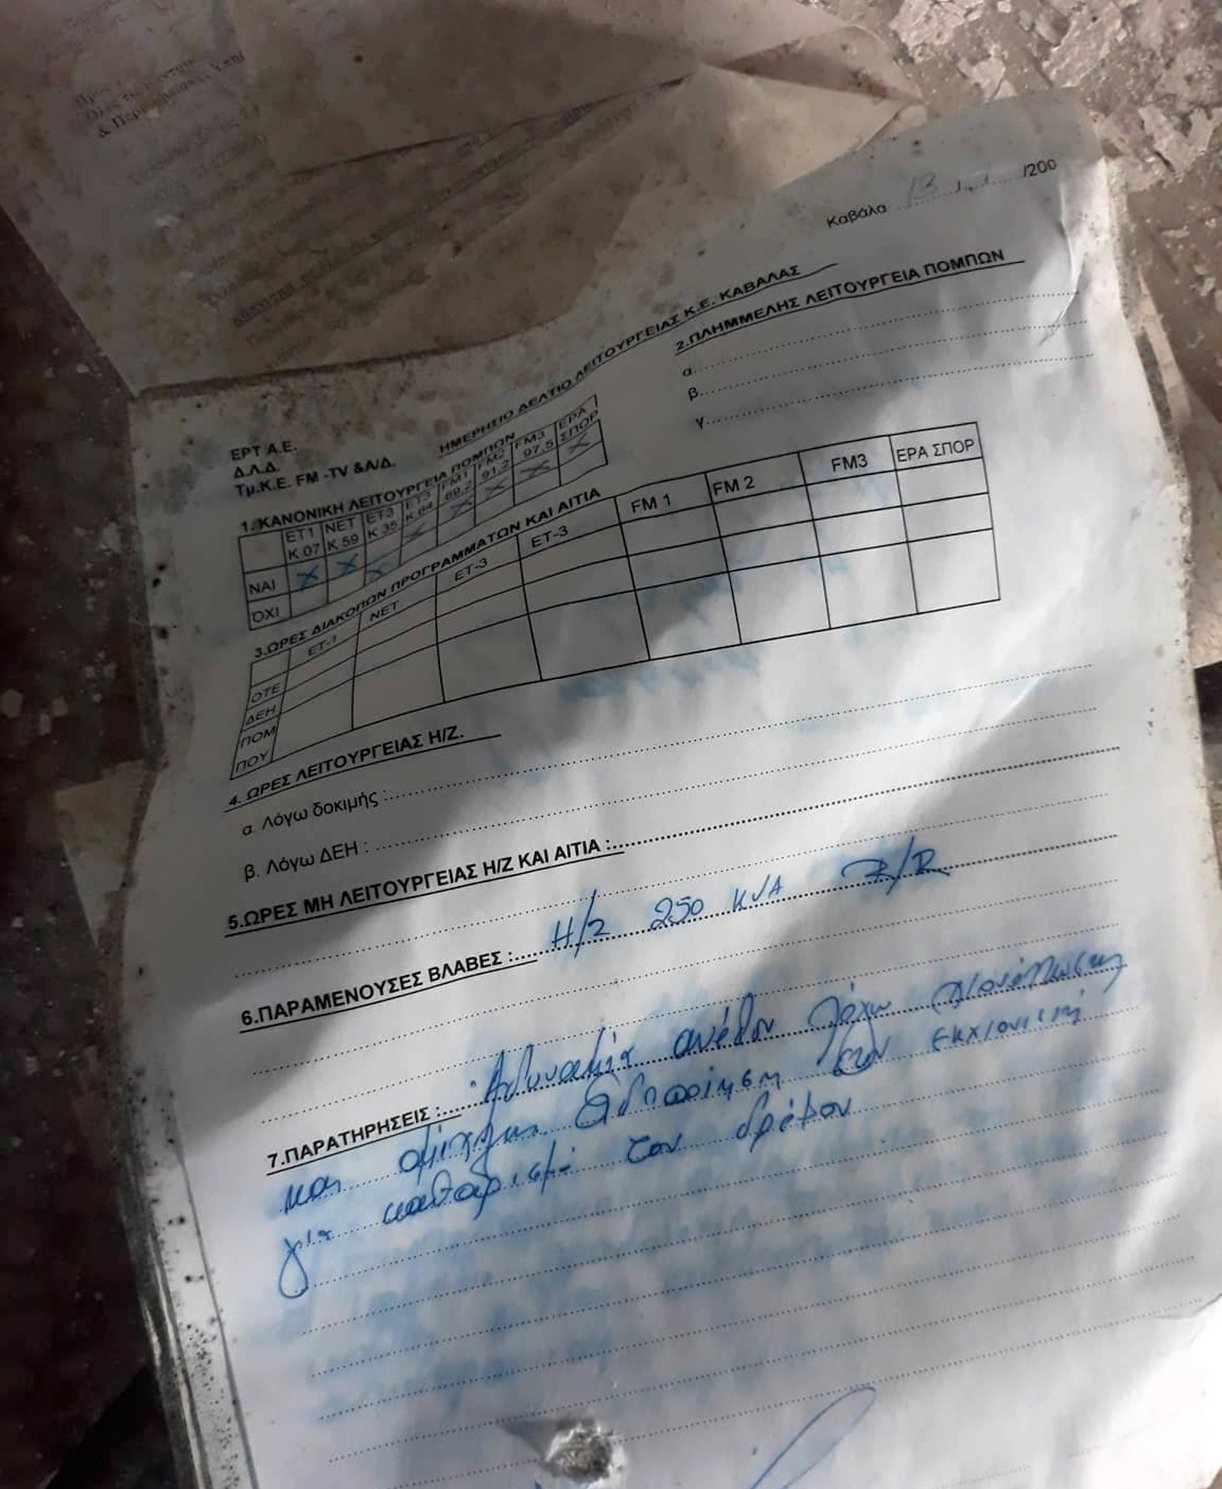 Καβάλα 13 / 1 /200
ΗΜΕΡΗΣΙΟ ΔΕΛΤΙΟ ΛΕΙΤΟΥΡΓΕΙΑΣ Κ.Ε. ΚΑΒΑΛΑΣ
ΕΡΤ Α.Ε.
Δ.Λ.Δ.
Τμ.Κ.Ε. FM -TV &Α/Δ.
1. ΚΑΝΟΝΙΚΗ ΛΕΙΤΟΥΡΓΕΙΑ ΠΟΜΠΩΝ
ΕΤ1 ΝΕΤ ΕΤ3 ΕΤ3 FM1 FM2 FM3 ΕΡΑ
Κ 07 Κ 59 Κ 35 Κ 64 89,2 91,2 97,5 ΣΠΟΡ
ΝΑΙ X X X X X X X X
ΌΧΙ
2.ΠΛΗΜΜΕΛΗΣ ΛΕΙΤΟΥΡΓΕΙΑ ΠΟΜΠΩΝ
α
β
γ
3.ΩΡΕΣ ΔΙΑΚΟΠΩΝ ΠΡΟΓΡΑΜΜΑΤΩΝ ΚΑΙ ΑΙΤΙΑ
ΕΤ-1 ΝΕΤ ΕΤ-3 ΕΤ-3 FM 1 FM 2 FM3 ΕΡΑ ΣΠΟΡ
ΟΤΕ
ΔΕΗ
ΠΟΜ
ΠΟΥ
4. ΩΡΕΣ ΛΕΙΤΟΥΡΓΕΙΑΣ Η/Ζ.
α. Λόγω δοκιμής :
β. Λόγω ΔΕΗ :
5.ΩΡΕΣ ΜΗ ΛΕΙΤΟΥΡΓΕΙΑΣ Η/Ζ ΚΑΙ ΑΙΤΙΑ :
6.ΠΑΡΑΜΕΝΟΥΣΕΣ ΒΛΑΒΕΣ : Η/Ζ 250 KVA R/R
7.ΠΑΡΑΤΗΡΗΣΕΙΣ : Αδυναμία ανόδου λόγω χιονόπτωσης
και ομίχλης. Ειδοποίηση στον εκχιονιστή
για καθαρισμό του δρόμου